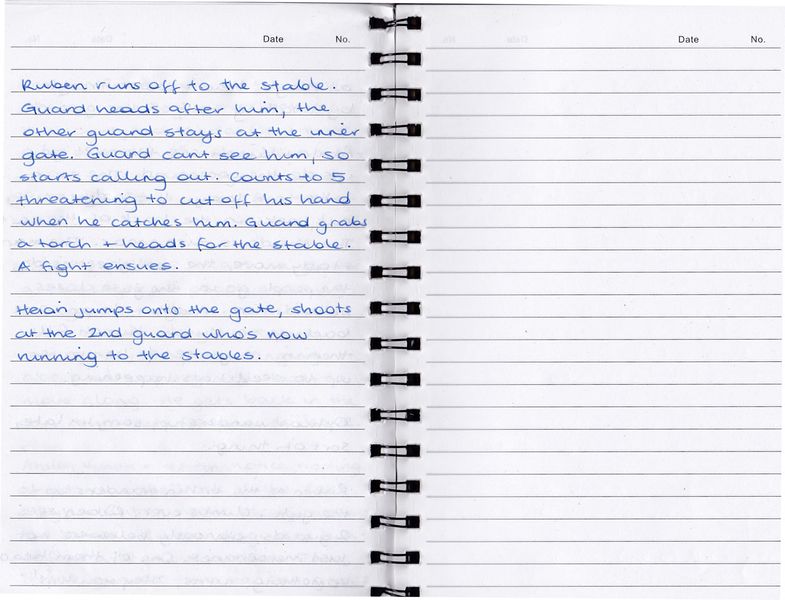 Date No.
Ruben runs off to the stable.
Guard heads after him, the
other guard stays at the inner
gate. Guard cant see him, so
starts calling out. Counts to 5
threatening to cut off his hand
when he catches him. Guard grabs
a torch + heads for the stable.
A fight ensues.
jumps onto the gate, shoots
at the 2nd guard who's now
running to the stables.
Date No.